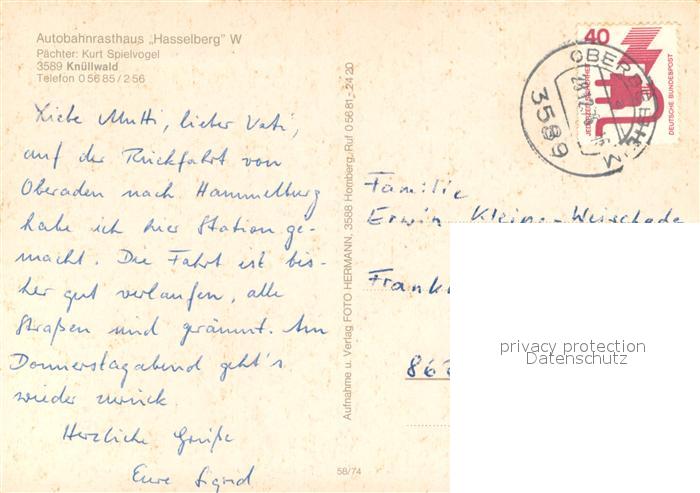 Autobahnrasthaus „Hasselberg" W
Pächter: Kurt Spielvogel
3589 Knüllwald
Telefon 0 56 85 / 2 56
Liebe Mutti, lieber Vati,
auf der Rückfahrt von
Oberaden nach Hammelburg
habe ich hier Station ge-
macht. Die Fahrt ist bis-
her gut verlaufen, alle
Straßen sind geräumt. Am
Donnerstagabend geht's
wieder zurück.
Herzliche Grüße
Eure Sigrid
Aufnahme u. Verlag FOTO HERMANN, 3588 Homberg, Ruf 0 56 81 - 24 20
58/74
40
DEUTSCHE BUNDESPOST
3589
Familie
Erwin Kleine-Weischede
Frank
86
privacy protection
Datenschutz